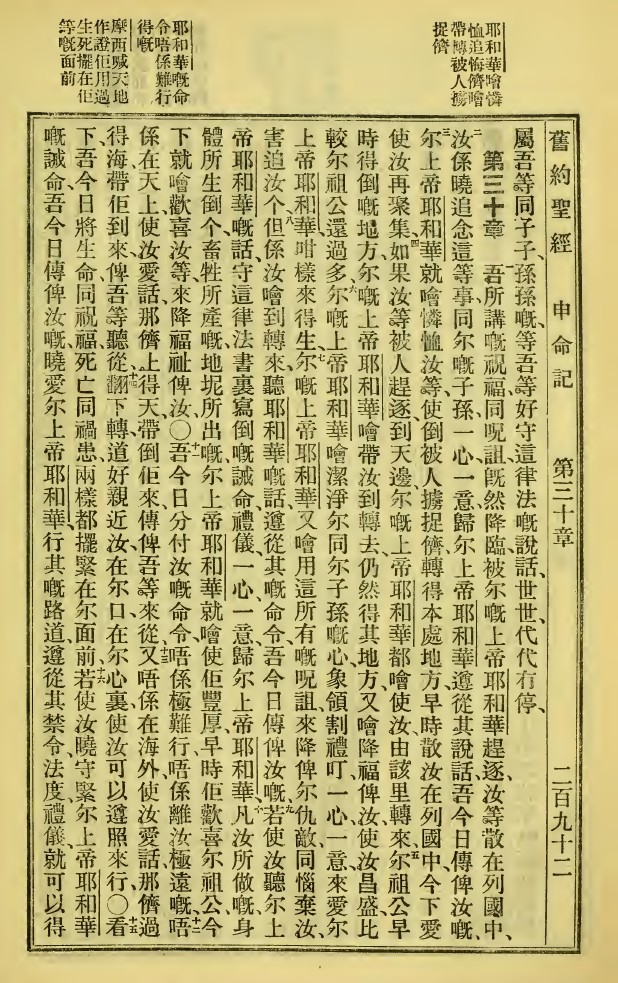 耶和華噲憐
恤追悔儕噲
帶轉被人擄
捉儕
耶和華嘅命
令唔係難行
得嘅
摩西喊天地
作證佢用過
生死擺在佢
等嘅面前
舊約聖經 申命記 第三十章 二百九十二
屬吾等同子子、孫孫嘅、等吾等好守這律法嘅說話、世世、代代有停、
第三十章 一吾所講嘅祝福、同呪詛、既然降臨、被尔嘅上帝耶和華趕逐汝等、散在列國中、
二汝係曉追念這等事、同尔嘅子孫、一心一意歸尔上帝耶和華、遵從其說話、吾今日傳俾汝嘅、
三尔上帝耶和華就噲憐恤汝等、使倒被人擄捉儕轉得本處地方、早時散汝在列國中、今下愛
使汝再聚集、四如果汝等被人趕逐到天邊、尔嘅上帝耶和華都噲使汝由該里轉來、五尔祖公早
時得倒嘅地方、尔嘅上帝耶和華噲帶汝到轉去、仍然得其地方、又噲降福俾汝、使汝昌盛、比
較尔祖公還過多、六尔嘅上帝耶和華噲潔淨尔同尔子孫嘅心、象領割禮叮、一心一意來愛尔
上帝耶和華、咁樣來得生、七尔嘅上帝耶和華又噲用這所有嘅呪詛、來降俾尔仇敵、同惱棄汝、
害追汝个、八但係汝噲到轉來、聽耶和華嘅話、遵從其嘅命令、吾今日傳俾汝嘅、九若使汝聽尔上
帝耶和華嘅話、守這律法書裏寫倒嘅誡命、禮儀、一心一意歸尔上帝耶和華、十凡汝所做嘅、身
體所生倒个、畜牲所產嘅、地坭所出嘅、尔上帝耶和華就噲使佢豐厚、早時佢歡喜尔祖公、今
下就噲歡喜汝等、來降福祉俾汝〇十一吾今日分付汝嘅命令、唔係極難行、唔係離汝極遠嘅、十二唔
係在天上、使汝愛話、那儕上得天、帶倒佢來、傳俾吾等來從、十三又唔係在海外、使汝愛話、那儕過
得海、帶佢到來、俾吾等聽從、十四翻下轉、道好親近汝、在尔口、在尔心裏、使汝可以遵照來行、〇十五看
下、吾今日將生命同祝福、死亡同禍患、兩樣都擺緊在尔面前、十六若使汝曉守緊尔上帝耶和華
嘅誡命、吾今日傳俾汝嘅、曉愛尔上帝耶和華、行其嘅路道、遵從其禁令、法度、禮儀、就可以得